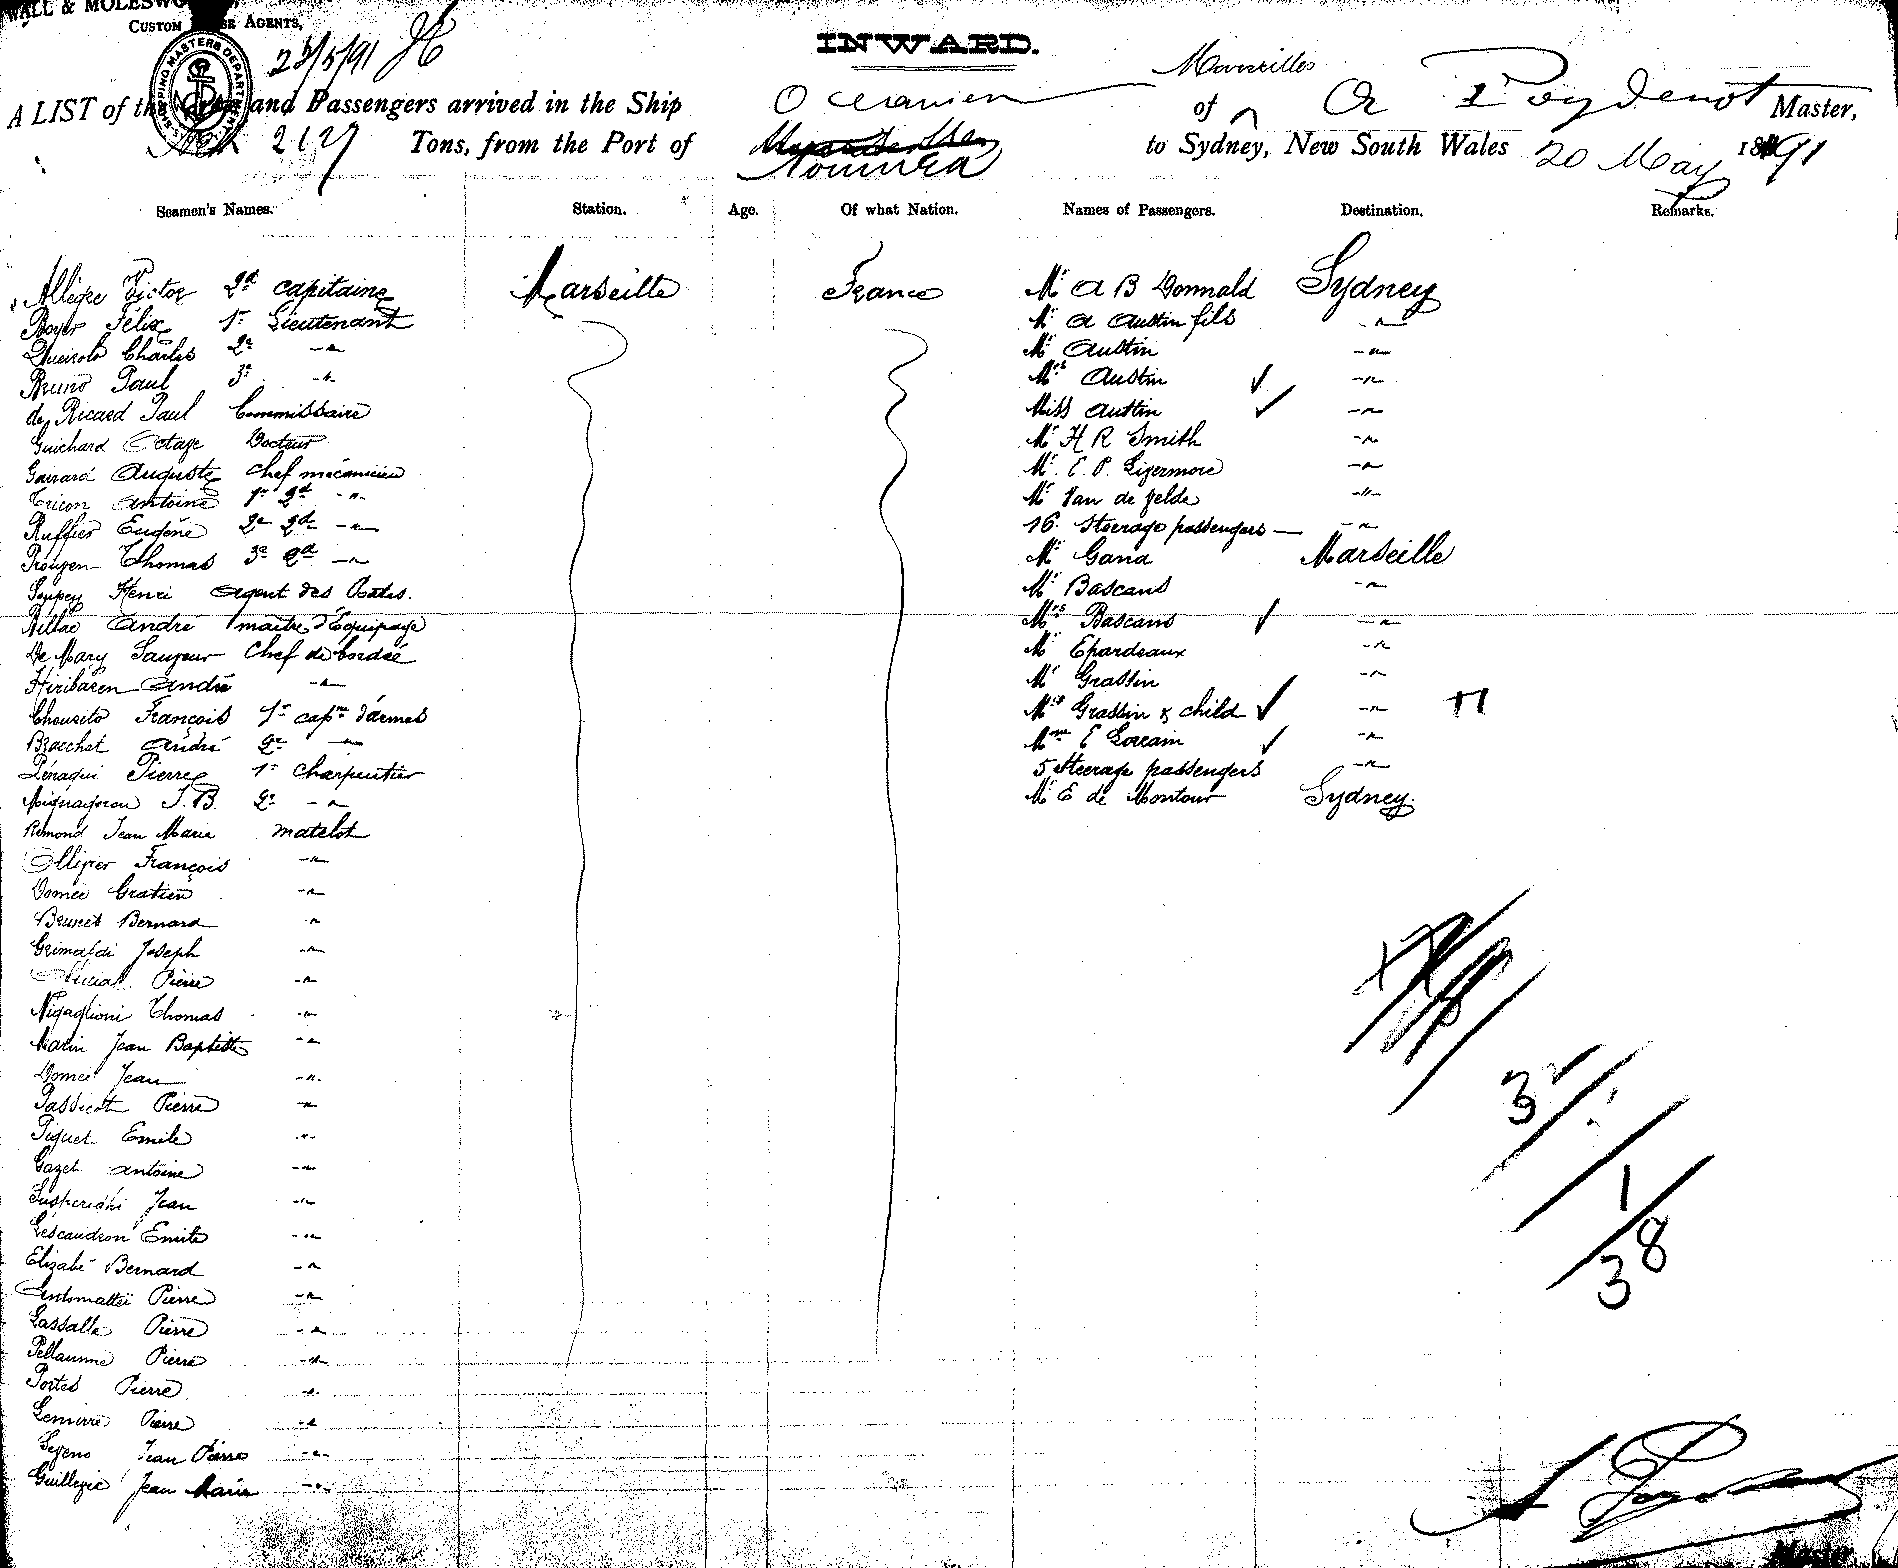 WALL & MOLESWO
CUSTOM SE AGENTS,
SHIPPING MASTERS DEPARTMENT
23/5/91
INWARD.
Marseilles
A LIST of the Crew and Passengers arrived in the Ship Oceanien of A Poydenot Master,
2127 Tons, from the Port of Noumea to Sydney, New South Wales 20 May 1891
Seamen's Names. Station. Age. Of what Nation. Names of Passengers. Destination. Remarks.
Allègre Victor 2d capitaine Marseille France Mr A B Donnald Sydney
Boyer Félix 1er Lieutenant Mr A Austin fils -"-
Queirolo Charles 2e -"- Mr Austin -"-
Bruno Paul 3e -"- Mrs Austin -"-
de Ricard Paul Commissaire Miss Austin -"-
Guichard Octave Docteur Mr H R Smith -"-
Gairard Auguste chef mécanicien Mr E. P. Livermore -"-
Tricon Antoine 1er 2d -"- Mr Van de Velde -"-
Ruffier Eugène 2e 2d -"- 16 Steerage passengers -"-
Thomas 3e 2d -"- Mr Gand Marseille
Henri Agent des Postes. Mr Bascans -"-
André maître d'Equipage Mrs Bascans -"-
De Mary Sauveur Chef de bordée Mr Epardeaux -"-
Hiribaren André -"- Mr Grassin -"-
François 1er capne d'armes Mrs Grassin & child -"-
Bracchet André 2e -"- Mme E Lorrain -"-
Pierre 1er Charpentier 5 Steerage passengers -"-
J. B. 2e -"- Mr E de Montour Sydney
Rémond Jean Marie matelot
Ollivier François -"-
Domec Gratien -"-
Brunet Bernard -"-
Grimaldi Joseph -"-
Pierre -"-
Nigaglioni Thomas -"-
Marin Jean Baptiste -"-
Domec Jean -"-
Passicot Pierre -"-
Piquet Emile -"-
Gazet Antoine -"-
Jean -"-
Lescaudron Emile -"-
Elizabé Bernard -"-
Antomattei Pierre -"-
Lassalle Pierre -"-
Pellaumé Pierre -"-
Portes Pierre -"-
Lemirre Pierre -"-
Jean Pierre -"-
Jean Marie -"-
3
1
38